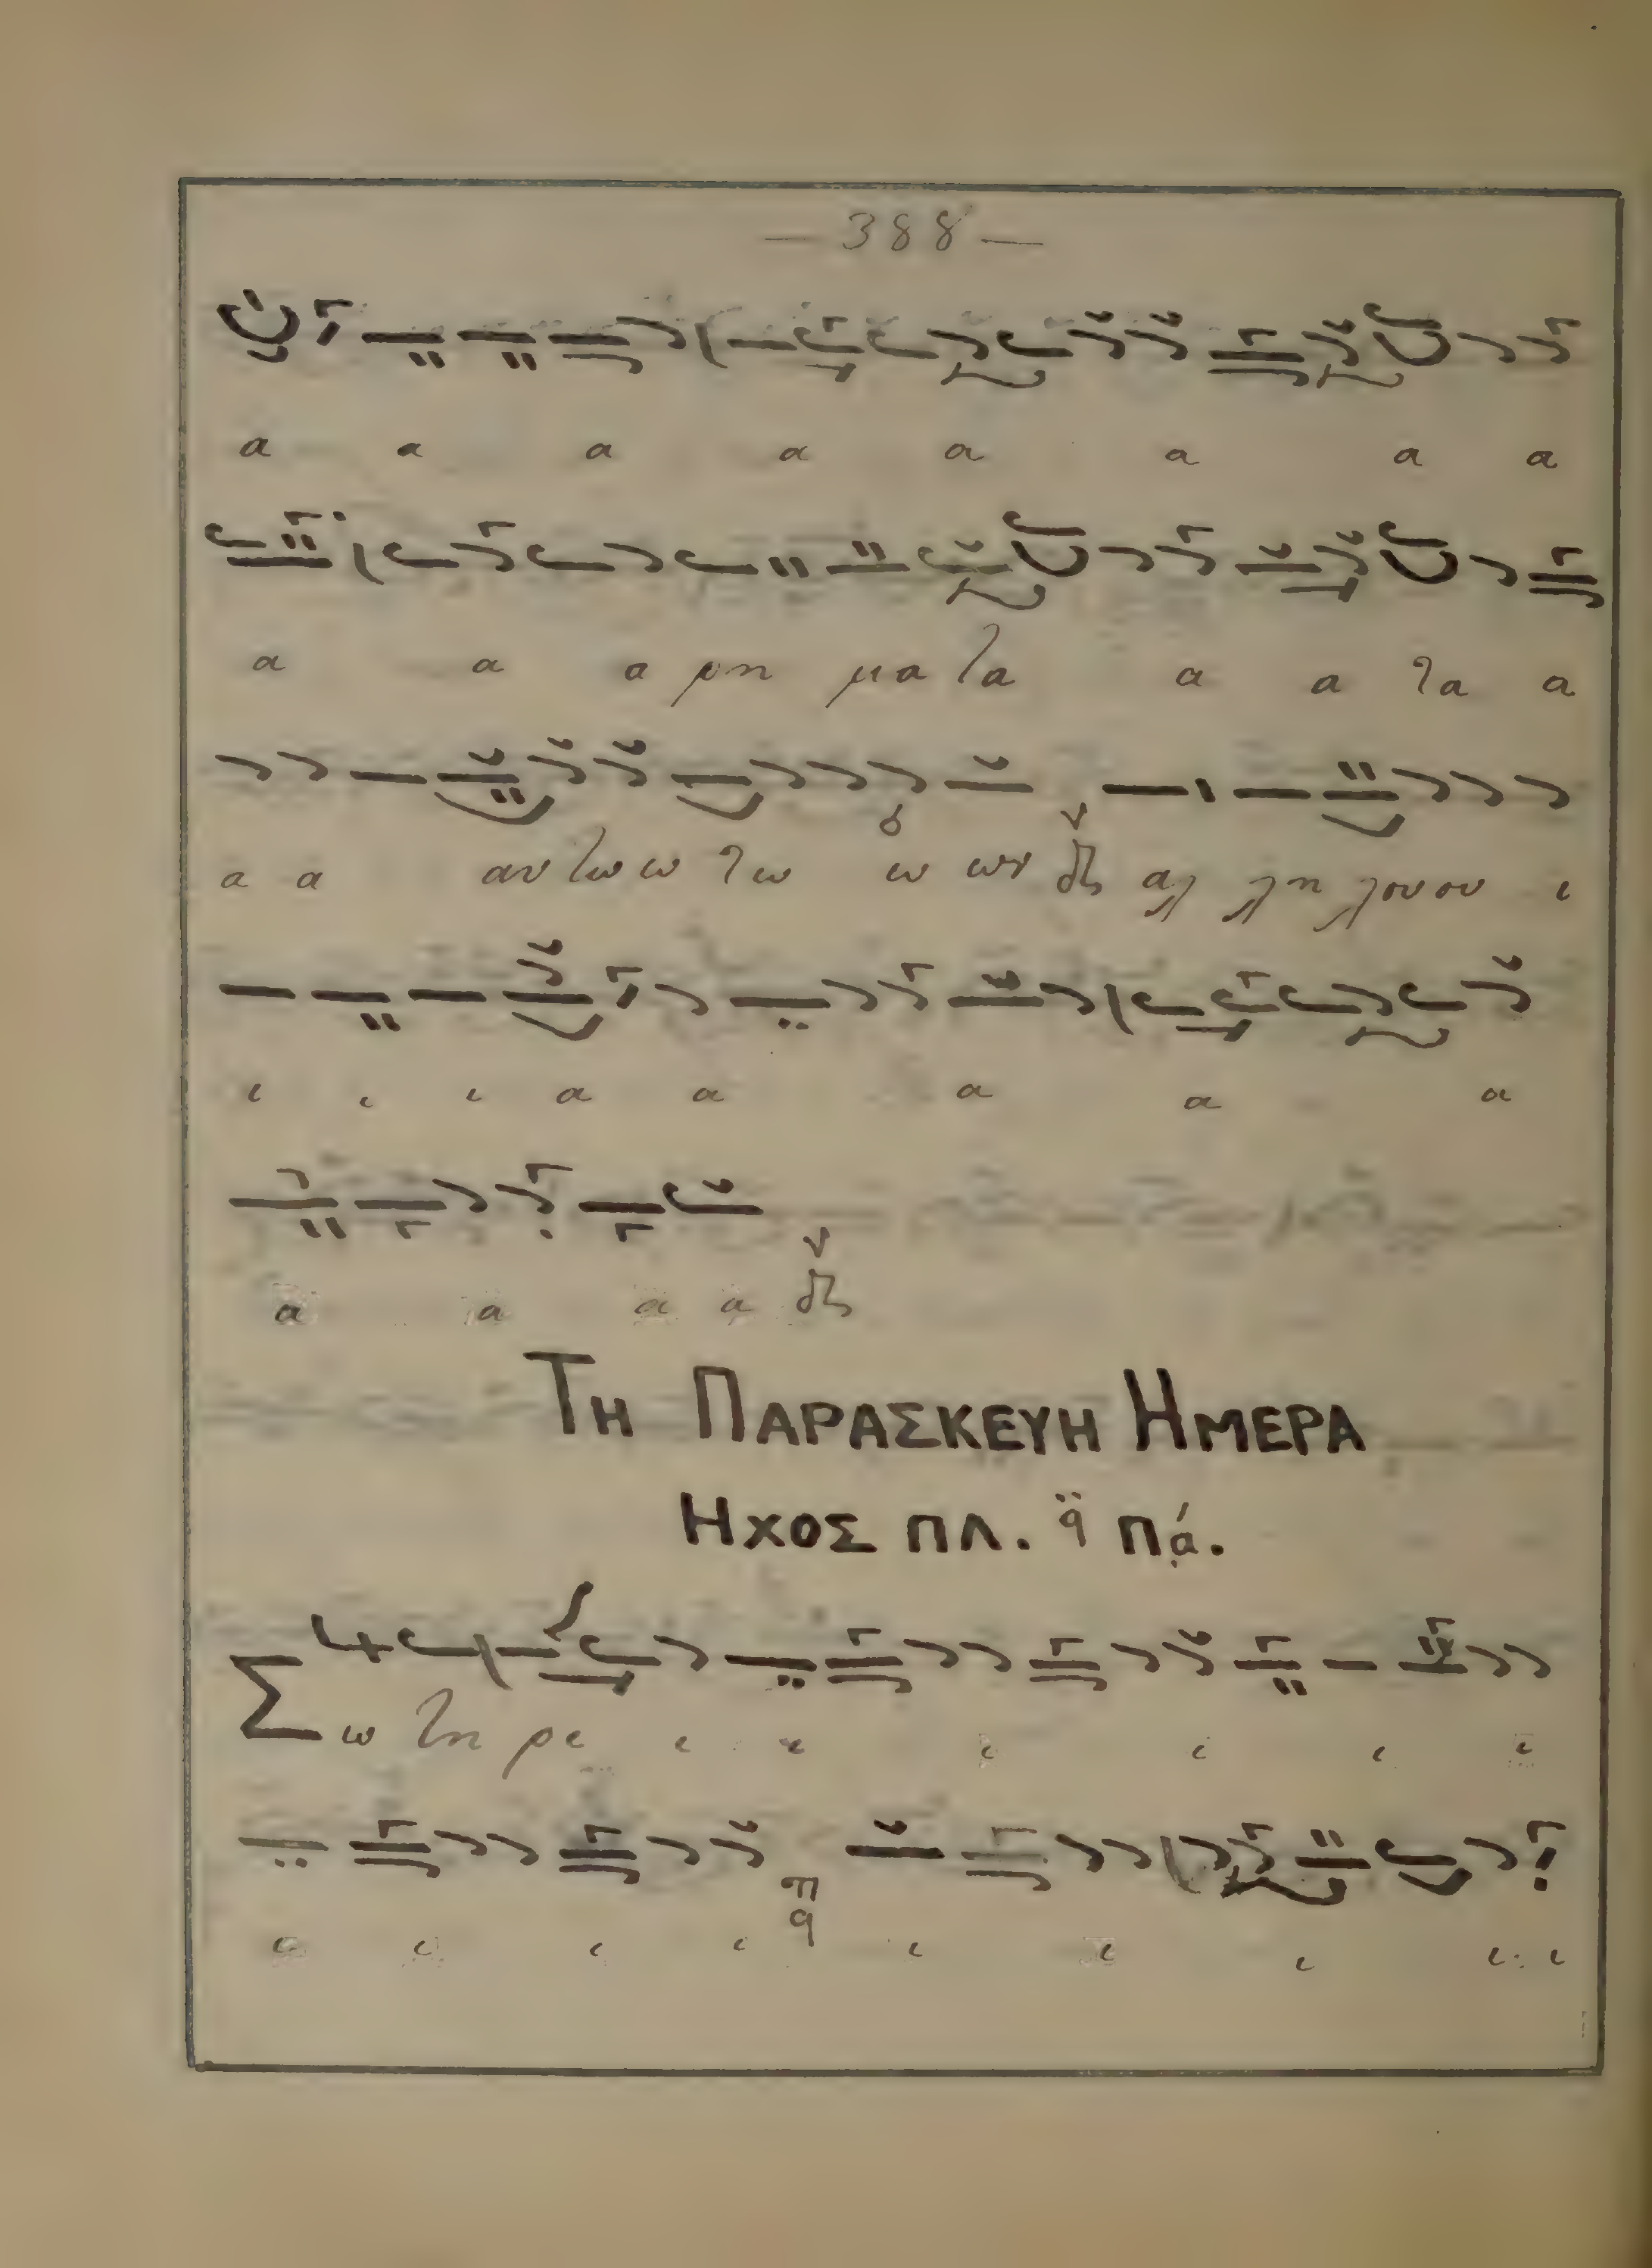 — 388 —
α α α α α α α α
α α α ρη μα τα α α τα α
α α αυ τω ω τω ω ων αλ λη λου ου ι
ι ι ι α α α α α
α α α α
ΤΗ ΠΑΡΑΣΚΕΥΗ ΗΜΕΡΑ
ΗΧΟΣ ΠΛ. q̈ πά.
Σω τη ρι ι ι ι ι ι ι
ι ι ι ι ι ι ι ι ι